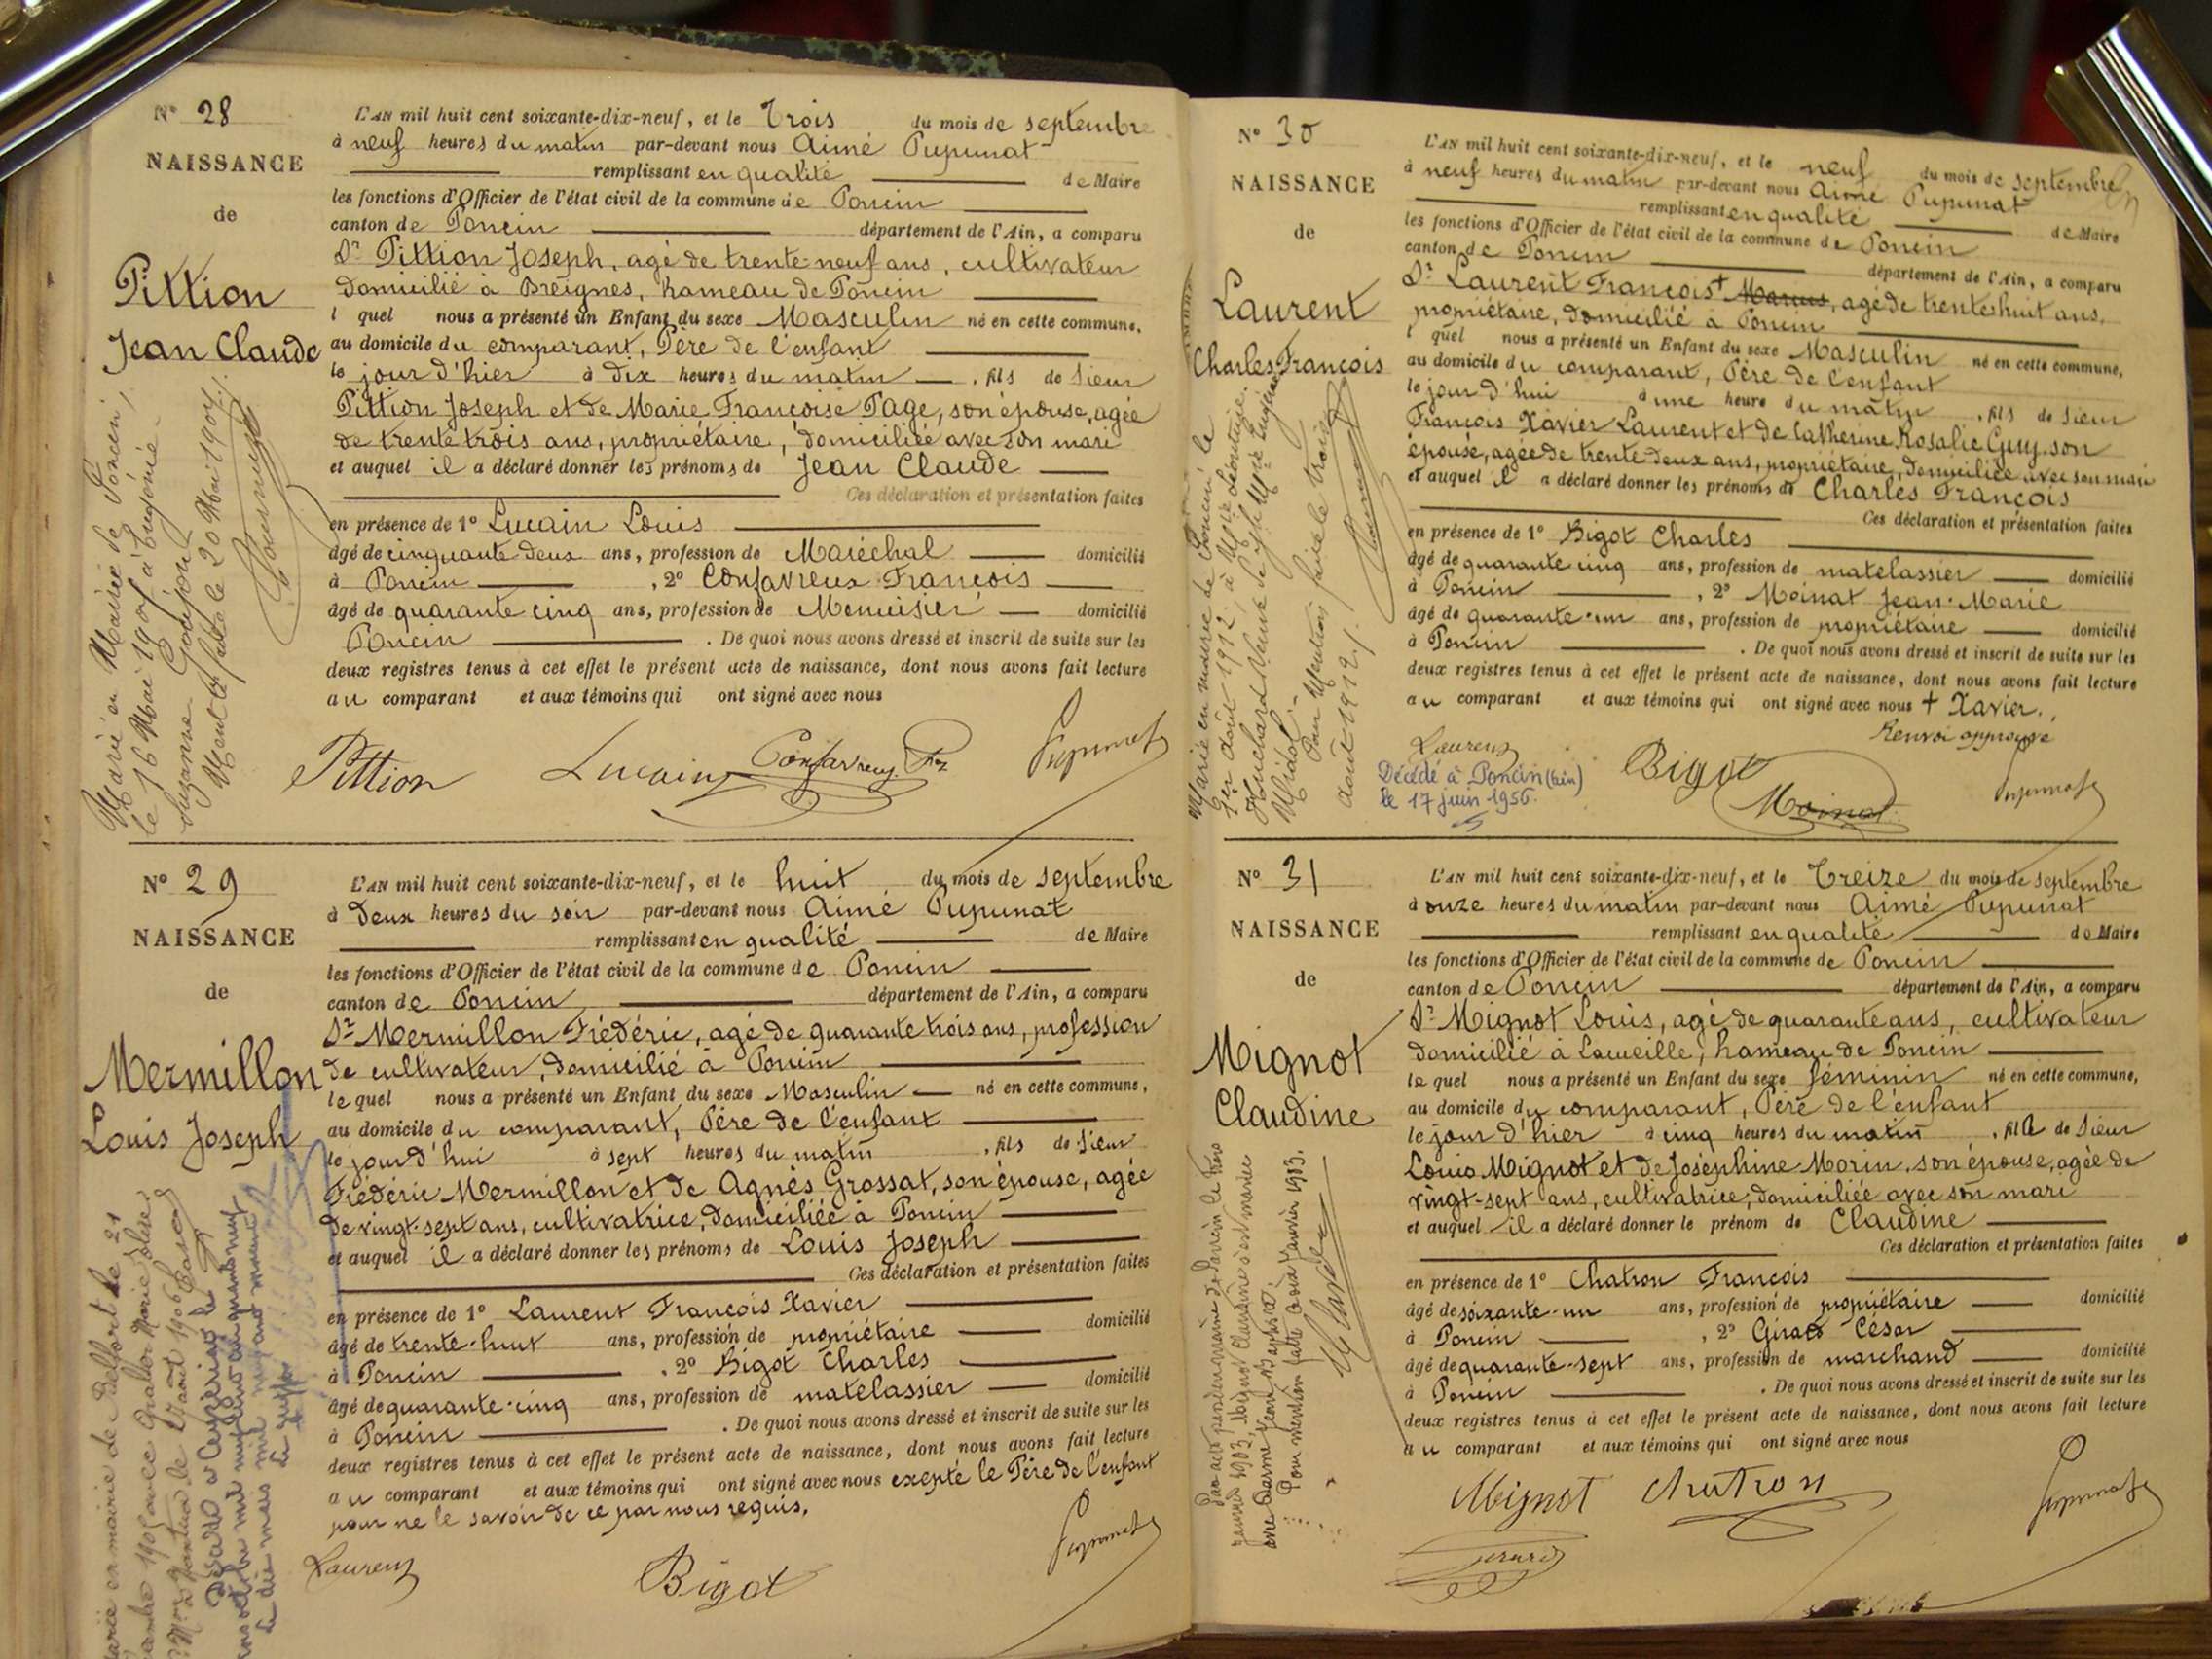 N° 28
NAISSANCE
de
Pittion
Jean Claude
L'AN mil huit cent soixante-dix-neuf, et le Trois du mois de septembre
à neuf heures du matin par-devant nous Aimé Pupunat
remplissant en qualité de Maire
les fonctions d'Officier de l'état civil de la commune de Poncin
canton de Poncin département de l'Ain, a comparu
Sr Pittion Joseph, agé de trente-neuf ans, cultivateur
domicilié à Breignes, hameau de Poncin
l quel nous a présenté un Enfant du sexe Masculin né en cette commune,
au domicile du comparant, Père de l'enfant
le jour d'hier à dix heures du matin, fils de Sieur
Pittion Joseph et de Marie Françoise Page, son épouse, agée
de trente trois ans, propriétaire, domiciliée avec son mari
et auquel il a déclaré donner les prénoms de Jean Claude
Ces déclaration et présentation faites
en présence de 1° Lucain Louis
âgé de cinquante deux ans, profession de Maréchal domicilié
à Poncin, 2° Confavreux François
âgé de quarante cinq ans, profession de Menuisier domicilié
Poncin. De quoi nous avons dressé et inscrit de suite sur les
deux registres tenus à cet effet le présent acte de naissance, dont nous avons fait lecture
au comparant et aux témoins qui ont signé avec nous
Pittion Lucain Confavreux Fz Pupunat
Marié en Mairie de Poncin,
le 16 Mai 1904 à Eugénie
Suzanne Goujon
Ment. faite le 20 Mai 1904
N° 29
NAISSANCE
de
Mermillon
Louis Joseph
L'AN mil huit cent soixante-dix-neuf, et le huit du mois de septembre
à deux heures du soir par-devant nous Aimé Pupunat
remplissant en qualité de Maire
les fonctions d'Officier de l'état civil de la commune de Poncin
canton de Poncin département de l'Ain, a comparu
Sr Mermillon Frédéric, agé de quarante trois ans, profession
de cultivateur, domicilié à Poncin
lequel nous a présenté un Enfant du sexe Masculin né en cette commune,
au domicile du comparant, Père de l'enfant
le jour d'hui à sept heures du matin, fils de Sieur
Frédéric Mermillon et de Agnès Grossat, son épouse, agée
de vingt-sept ans, cultivatrice, domiciliée à Poncin
et auquel il a déclaré donner les prénoms de Louis Joseph
Ces déclaration et présentation faites
en présence de 1° Laurent François Xavier
âgé de trente-huit ans, profession de propriétaire domicilié
à Poncin, 2° Bigot Charles
âgé de quarante-cinq ans, profession de matelassier domicilié
à Poncin. De quoi nous avons dressé et inscrit de suite sur les
deux registres tenus à cet effet le présent acte de naissance, dont nous avons fait lecture
au comparant et aux témoins qui ont signé avec nous excepté le Père de l'enfant
pour ne le savoir de ce par nous requis.
Laurent Bigot Pupunat
en mairie de Belfort le 21
Marie
le 17 août 1906
Décédé à Cerzériat le
mil neuf cent cinquante neuf
N° 30
NAISSANCE
de
Laurent
Charles François
L'AN mil huit cent soixante-dix-neuf, et le neuf du mois de septembre
à neuf heures du matin par-devant nous Aimé Pupunat
remplissant en qualité de Maire
les fonctions d'Officier de l'état civil de la commune de Poncin
canton de Poncin département de l'Ain, a comparu
Sr Laurent François + Marius, agé de trente huit ans,
propriétaire, domicilié à Poncin
l quel nous a présenté un Enfant du sexe Masculin né en cette commune,
au domicile du comparant, Père de l'enfant
le jour d'hui à une heure du matin, fils de Sieur
François Xavier Laurent et de Catherine Rosalie Guy son
épouse, agée de trente deux ans, propriétaire, domiciliée avec son mari
et auquel il a déclaré donner les prénoms de Charles François
Ces déclaration et présentation faites
en présence de 1° Bigot Charles
âgé de quarante cinq ans, profession de matelassier domicilié
à Poncin, 2° Moinat Jean-Marie
âgé de quarante-un ans, profession de propriétaire domicilié
à Poncin. De quoi nous avons dressé et inscrit de suite sur les
deux registres tenus à cet effet le présent acte de naissance, dont nous avons fait lecture
au comparant et aux témoins qui ont signé avec nous + Xavier.
Renvoi approuvé
Laurent Bigot Moinat Pupunat
Décédé à Poncin (Ain)
le 17 juin 1956.
Marié en mairie de Poncin le
1er Août 1912, à
Pour Mention faite le trois
Août 1912
N° 31
NAISSANCE
de
Mignot
Claudine
L'AN mil huit cent soixante-dix-neuf, et le Treize du mois de septembre
à onze heures du matin par-devant nous Aimé Pupunat
remplissant en qualité de Maire
les fonctions d'Officier de l'état civil de la commune de Poncin
canton de Poncin département de l'Ain, a comparu
Sr Mignot Louis, agé de quarante ans, cultivateur
domicilié à Lacueille, hameau de Poncin
le quel nous a présenté un Enfant du sexe féminin né en cette commune,
au domicile du comparant, Père de l'enfant
le jour d'hier à cinq heures du matin, fille de Sieur
Louis Mignot et de Joséphine Morin, son épouse, agée de
vingt-sept ans, cultivatrice, domiciliée avec son mari
et auquel il a déclaré donner le prénom de Claudine
Ces déclaration et présentation faites
en présence de 1° Chatron François
âgé de soixante-un ans, profession de propriétaire domicilié
à Poncin, 2° Girard César
âgé de quarante-sept ans, profession de marchand domicilié
à Poncin. De quoi nous avons dressé et inscrit de suite sur les
deux registres tenus à cet effet le présent acte de naissance, dont nous avons fait lecture
au comparant et aux témoins qui ont signé avec nous
Mignot Chatron Pupunat
Girard
janvier 1903, Mignot Claudine s'est mariée
Pour mention faite janvier 1903.